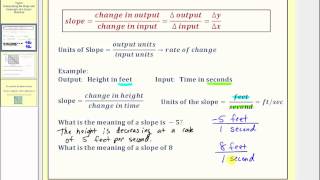 slope = change in output / change in input = Δ output / Δ input = Δy / Δx
Units of Slope = output units / input units → rate of change
Example:
Output: Height in feet Input: Time in seconds
slope = change in height / change in time Units of the slope = feet / second = ft/sec
What is the meaning of a slope is −5?
The height is decreasing at a rate
of 5 feet per second.
−5 feet / 1 second
What is the meaning of slope of 8
8 feet / 1 second